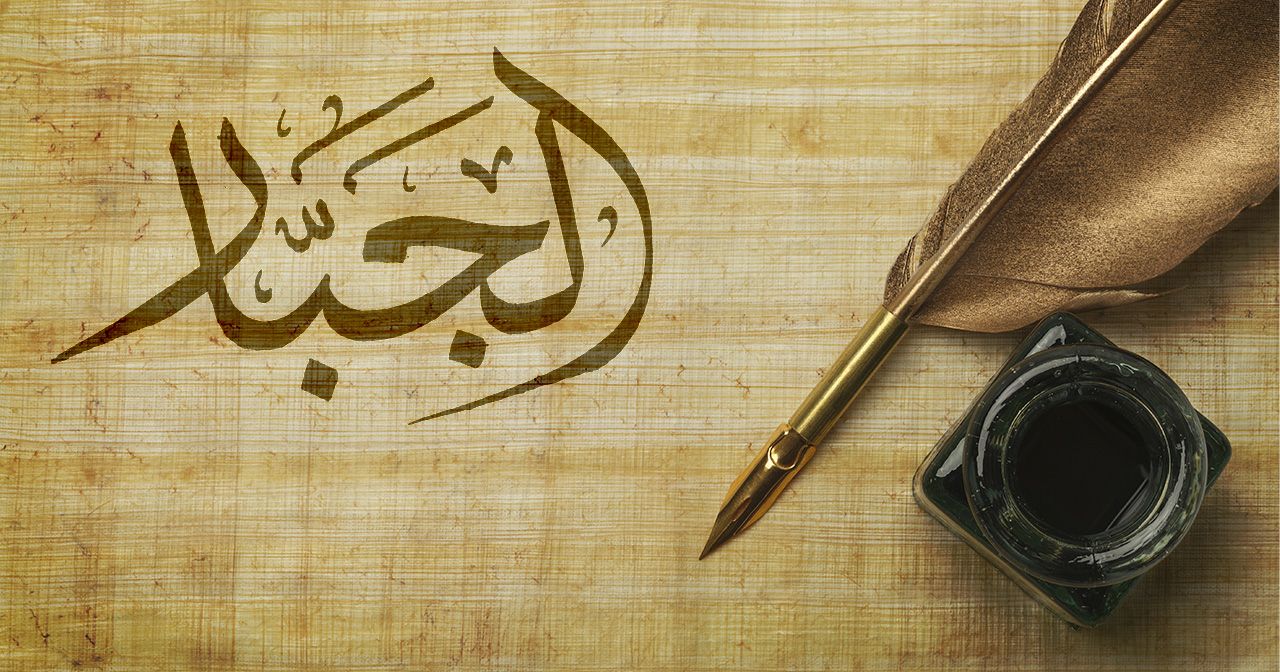 الجبَّار